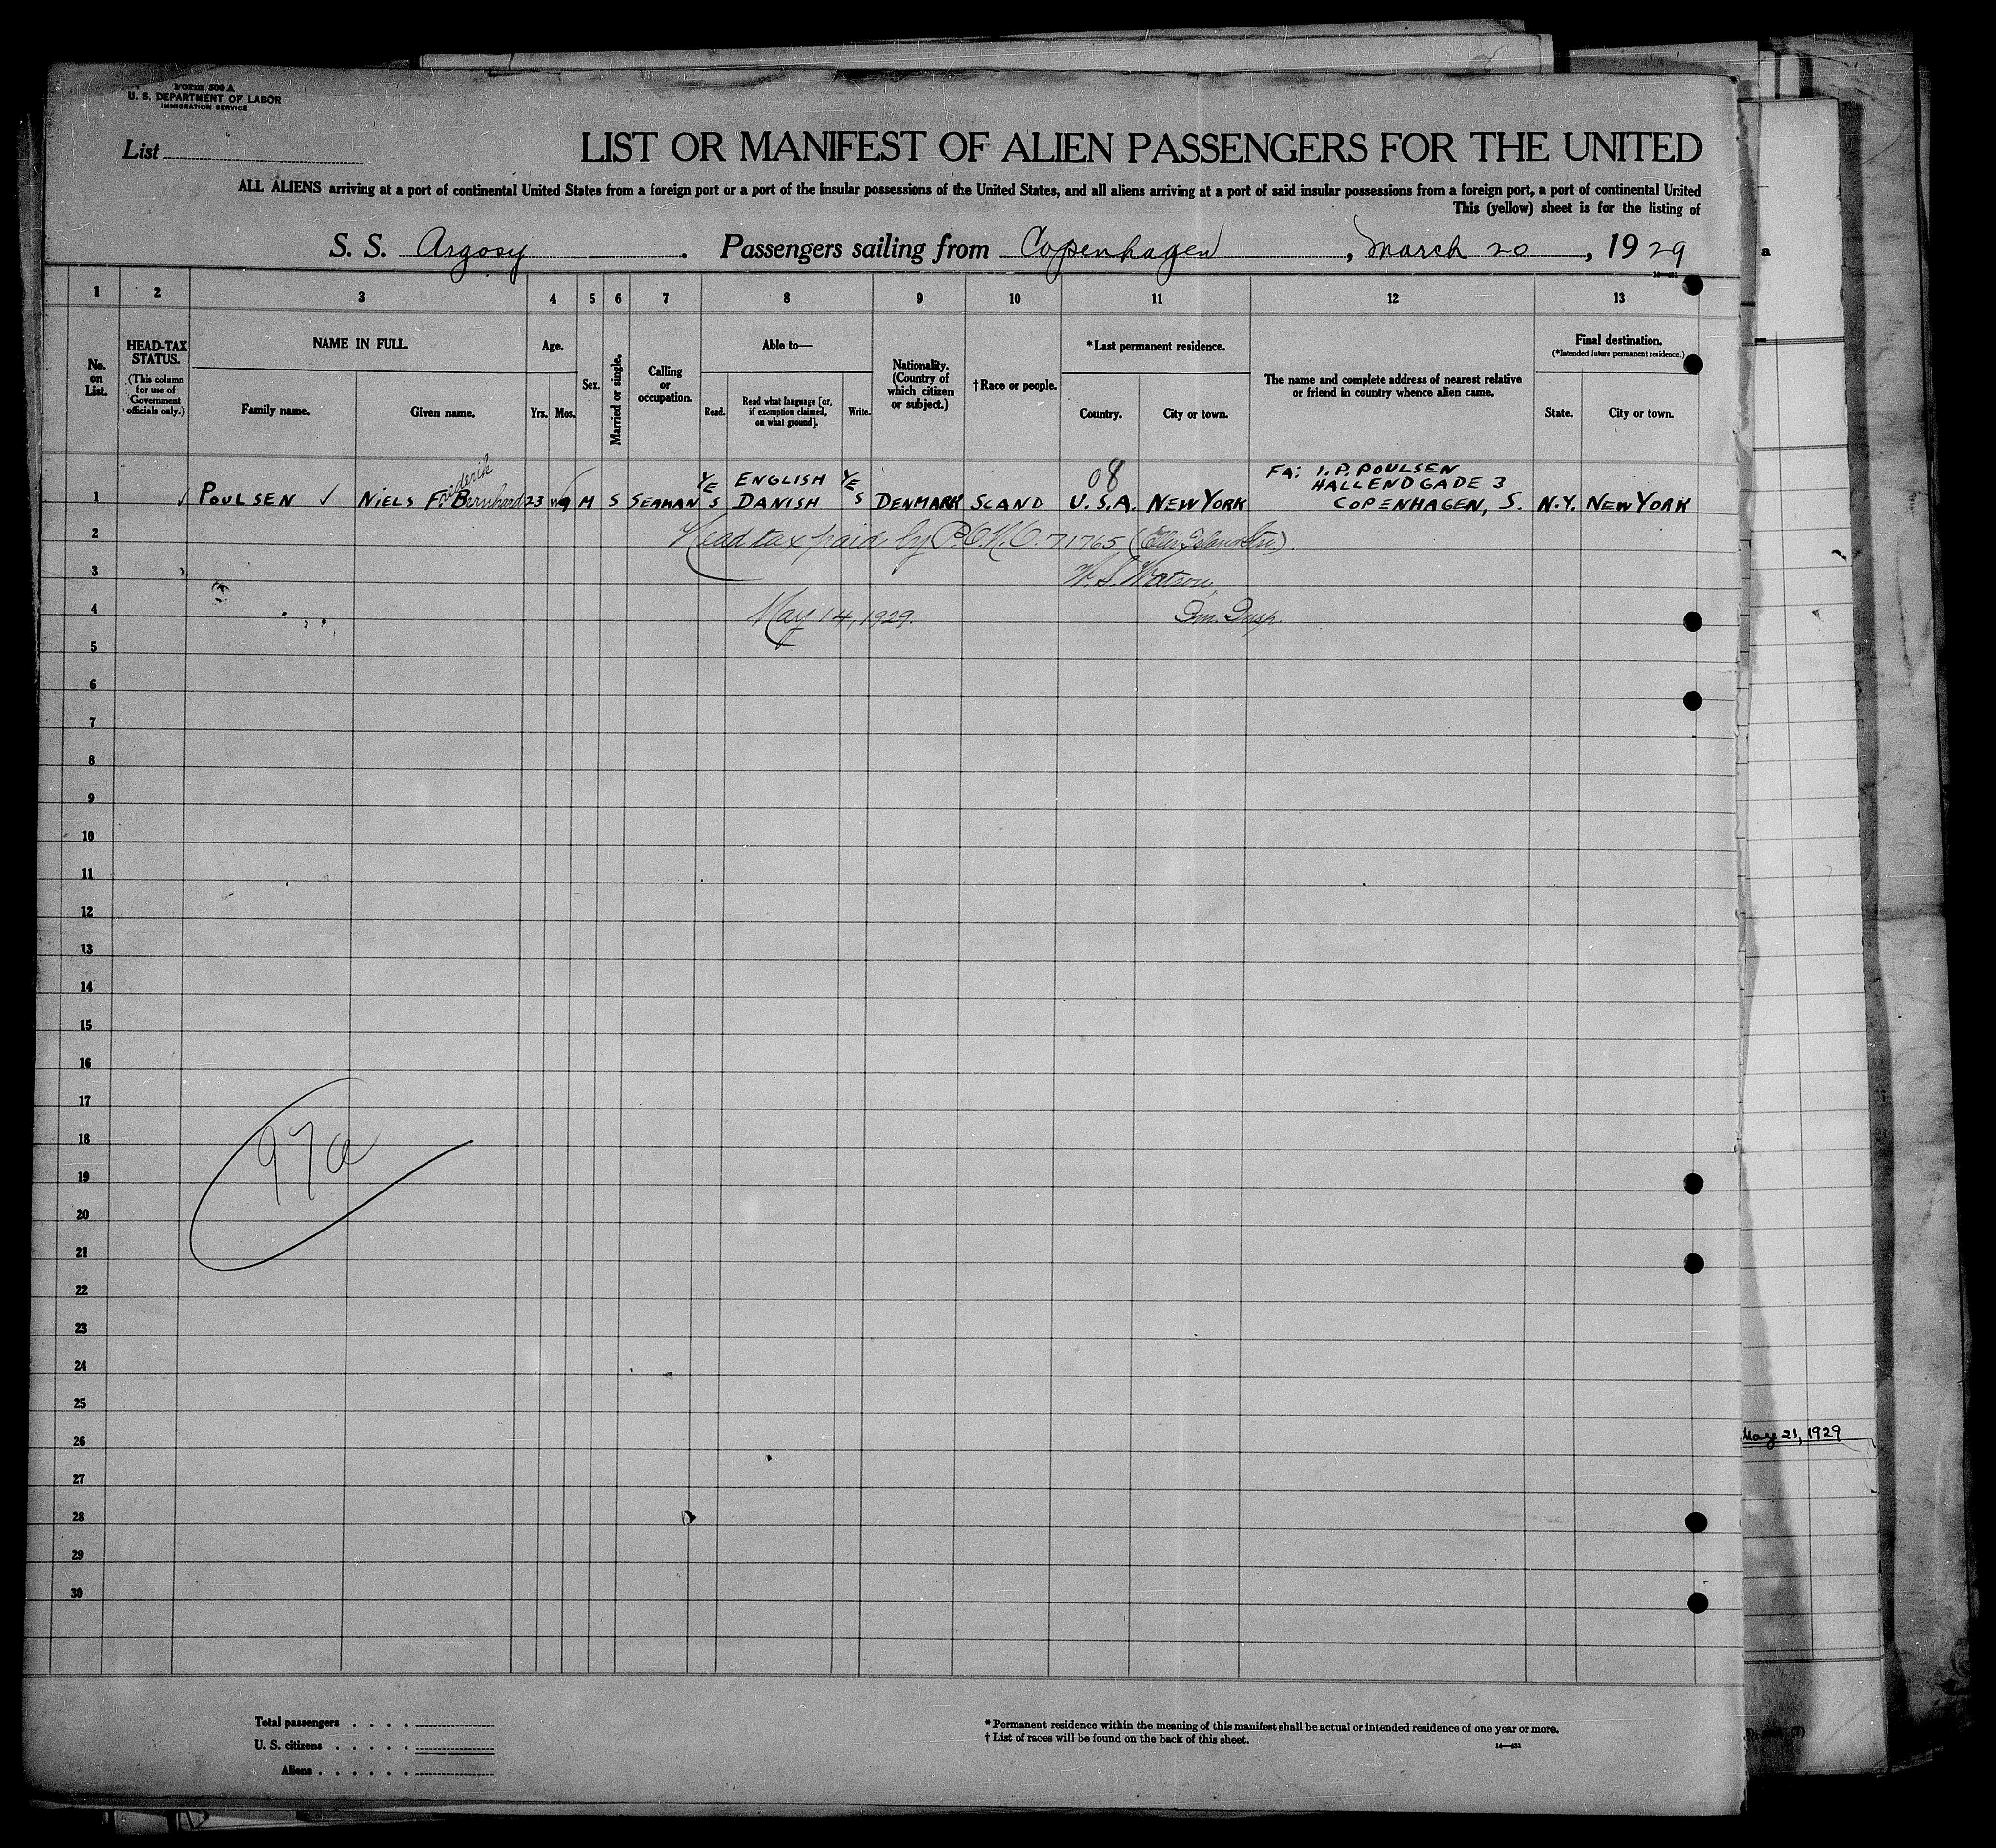 Form 500 A
U. S. DEPARTMENT OF LABOR
IMMIGRATION SERVICE
List
LIST OR MANIFEST OF ALIEN PASSENGERS FOR THE UNITED
ALL ALIENS arriving at a port of continental United States from a foreign port or a port of the insular possessions of the United States, and all aliens arriving at a port of said insular possessions from a foreign port, a port of continental United
This (yellow) sheet is for the listing of
S. S. Argosy . Passengers sailing from Copenhagen , March 20 , 1929
1 2 3 4 5 6 7 8 9 10 11 12 13
No. on List.
HEAD-TAX STATUS.
(This column for use of Government officials only.)
NAME IN FULL.
Family name.
Given name.
Age.
Yrs. Mos.
Sex.
Married or single.
Calling or occupation.
Able to—
Read.
Read what language [or, if exemption claimed, on what ground].
Write.
Nationality. (Country of which citizen or subject.)
†Race or people.
*Last permanent residence.
Country.
City or town.
The name and complete address of nearest relative or friend in country whence alien came.
Final destination.
(*Intended future permanent residence.)
State.
City or town.
1 ✓ POULSEN ✓ NIELS F. Bernhard 23 9 M S SEAMAN YES ENGLISH DANISH YES DENMARK SCAND 08 U.S.A. NEW YORK FA: I. P. POULSEN HALLENDGADE 3 COPENHAGEN, S. N.Y. NEW YORK
Frederik
2 Head tax paid by 71765 (Ellis Island
3 W. S. Watson,
4 May 14, 1929. Im. Insp.
5
6
7
8
9
10
11
12
13
14
15
16
17
18
97a
19
20
21
22
23
24
25
26
27
28
29
30
May 21, 1929
Total passengers . . . .
U. S. citizens . . . . .
Aliens . . . . . .
* Permanent residence within the meaning of this manifest shall be actual or intended residence of one year or more.
† List of races will be found on the back of this sheet.